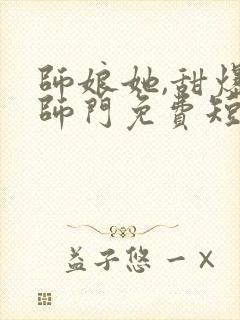 師娘她,甜爆
師門免費短
益子悠一 ×